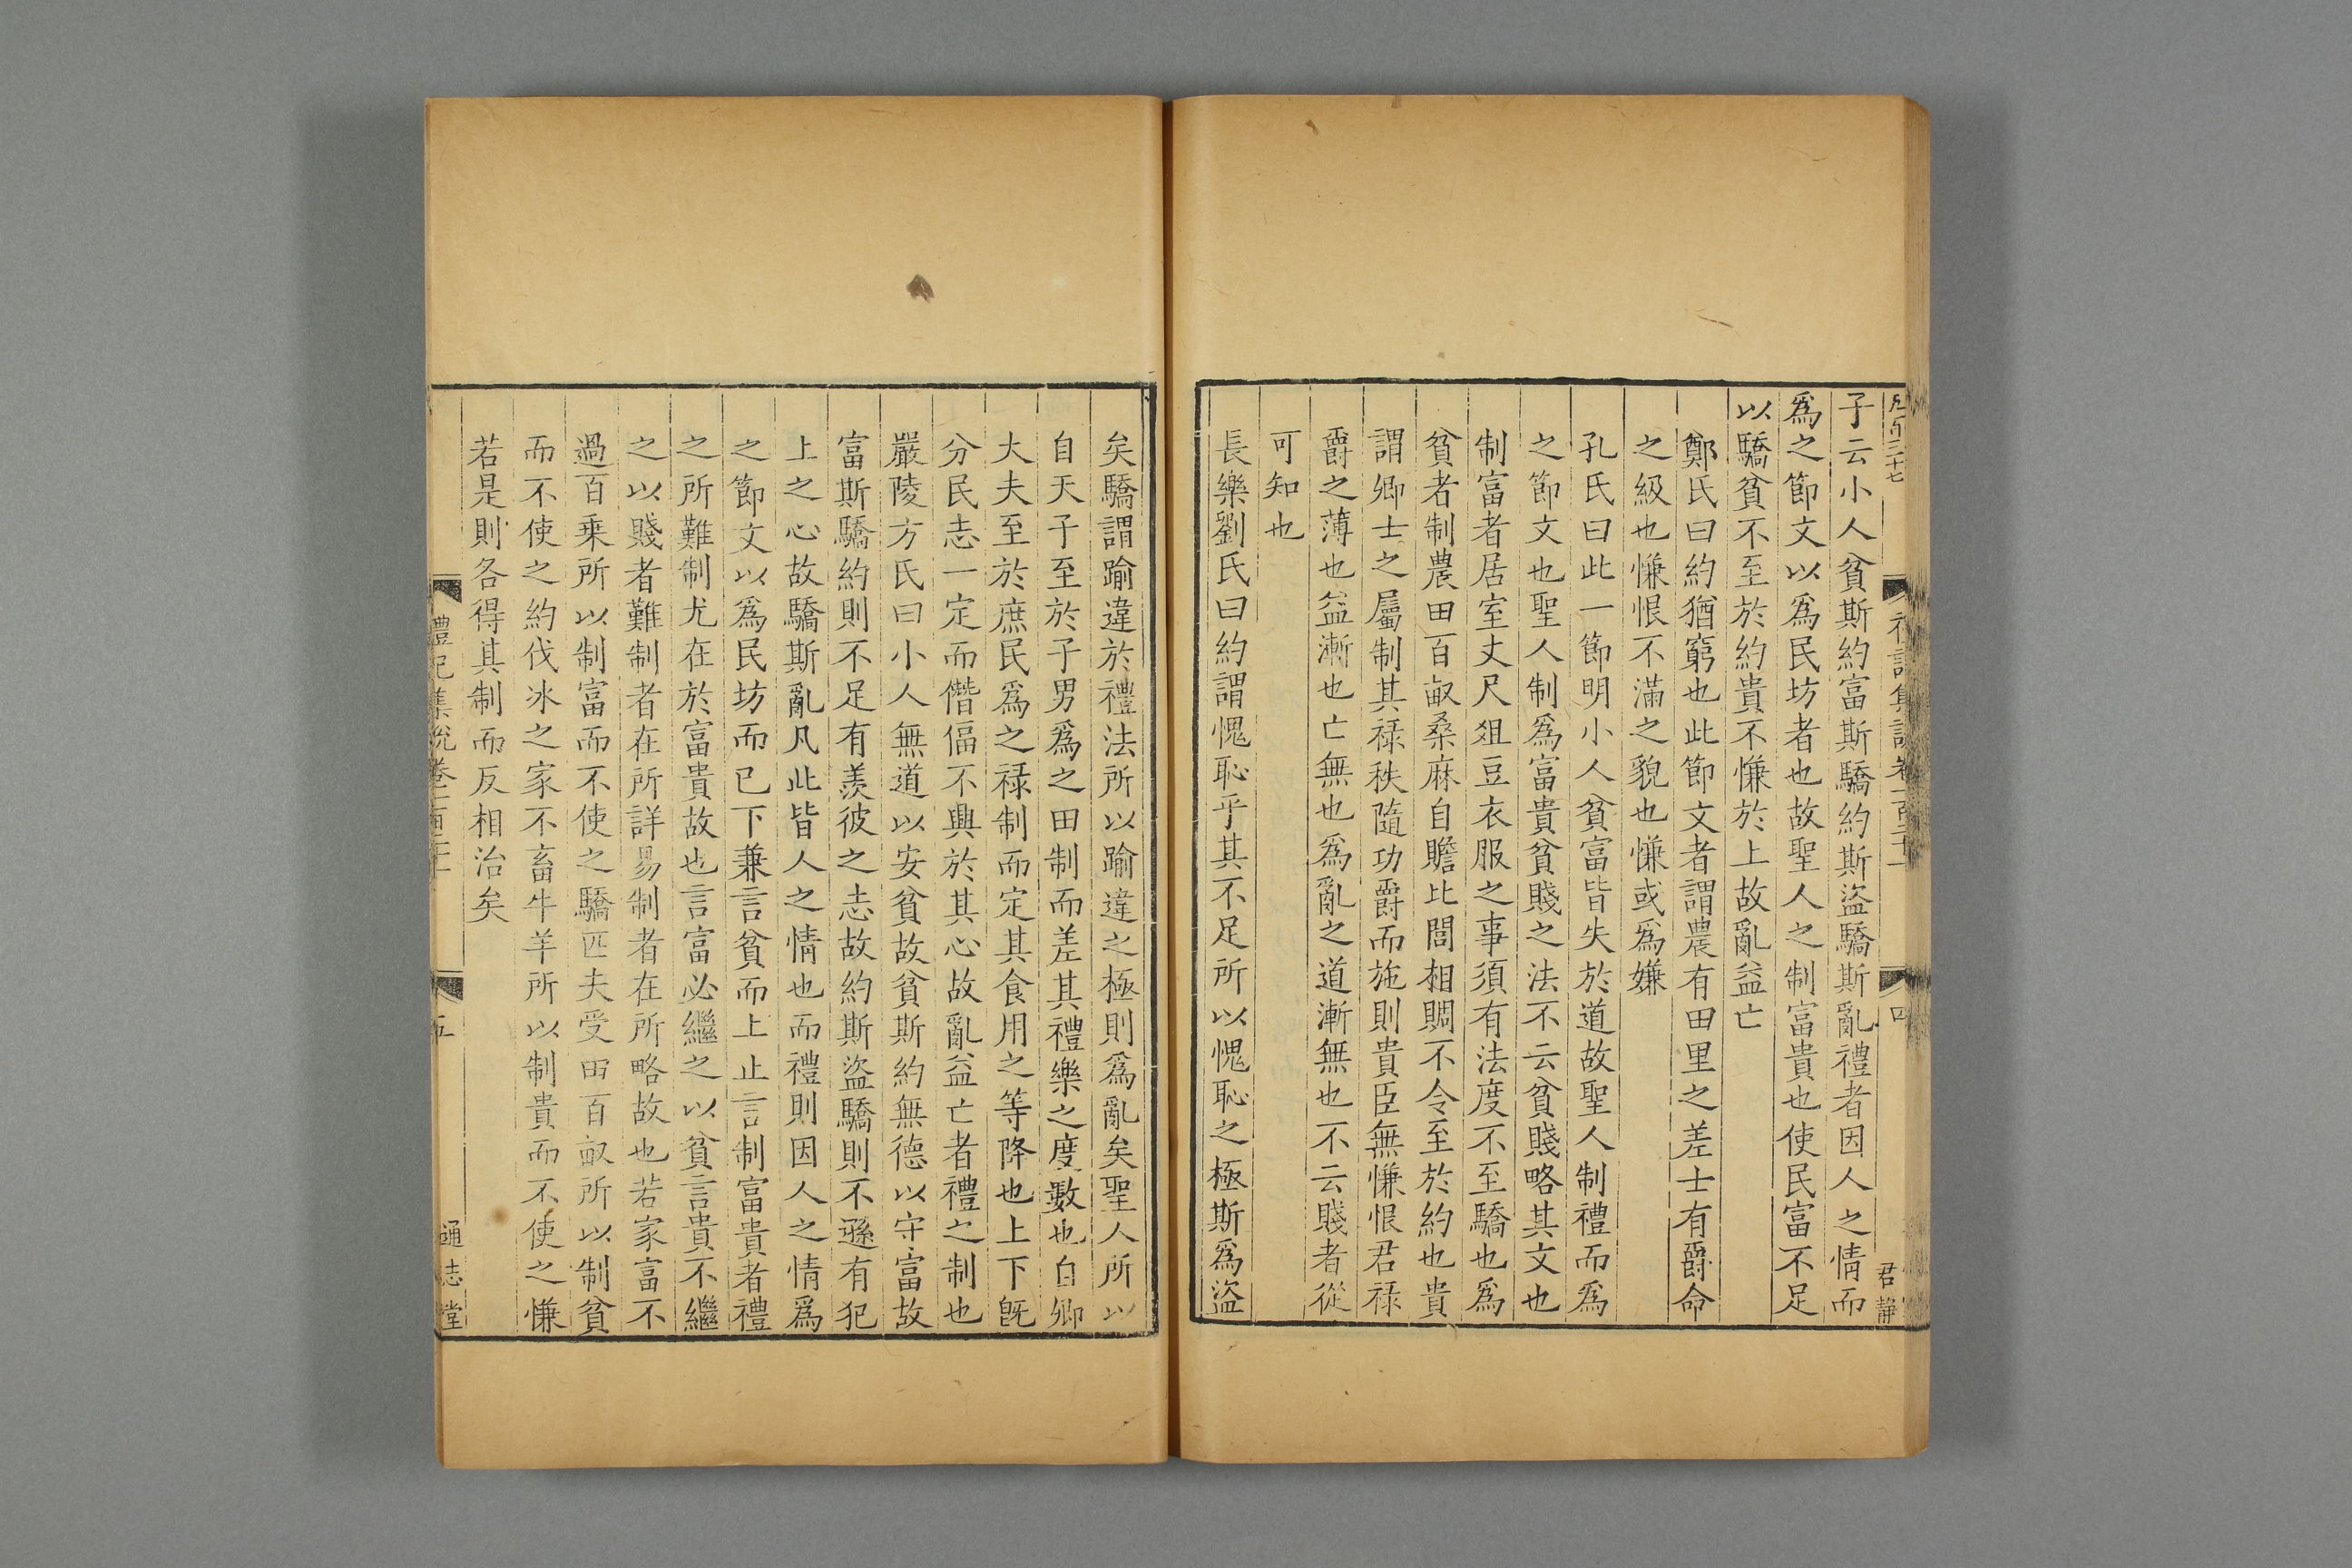 子云小人貧斯約富斯驕約斯盜驕斯亂禮者因人之情而
爲之節文以爲民坊者也故聖人之制富貴也使民富不足
以驕貧不至於約貴不慊於上故亂益亡
鄭氏曰約猶窮也此節文者謂農有田里之差士有爵命
之級也慊恨不滿之貌也慊或爲嫌
孔氏曰此一節明小人貧富皆失於道故聖人制禮而爲
之節文也聖人制爲富貴貧賤之法不云貧賤略其文也
制富者居室丈尺俎豆衣服之事須有法度不至驕也爲
貧者制農田百畝桑麻自贍比閭相賙不令至於約也貴
謂卿士之屬制其祿秩隨功爵而施則貴臣無慊恨君祿
爵之薄也益漸也亡無也爲亂之道漸無也不云賤者從
可知也
長樂劉氏曰約謂愧恥乎其不足所以愧恥之極斯爲盜
矣驕謂踰違於禮法所以踰違之極則爲亂矣聖人所以
自天子至於子男爲之田制而差其禮樂之度數也自卿
大夫至於庶民爲之祿制而定其食用之等降也上下旣
分民志一定而僭偪不興於其心故亂益亡者禮之制也
嚴陵方氏曰小人無道以安貧故貧斯約無德以守富故
富斯驕約則不足有羨彼之志故約斯盜驕則不遜有犯
上之心故驕斯亂凡此皆人之情也而禮則因人之情爲
之節文以爲民坊而已下兼言貧而上止言制富貴者禮
之所難制尤在於富貴故也言富必繼之以貧言貴不繼
之以賤者難制者在所詳易制者在所略故也若家富不
過百乘所以制富而不使之驕匹夫受田百畝所以制貧
而不使之約伐冰之家不畜牛羊所以制貴而不使之慊
若是則各得其制而反相治矣
禮記集說卷一百二十
五
通志堂
四
君靜